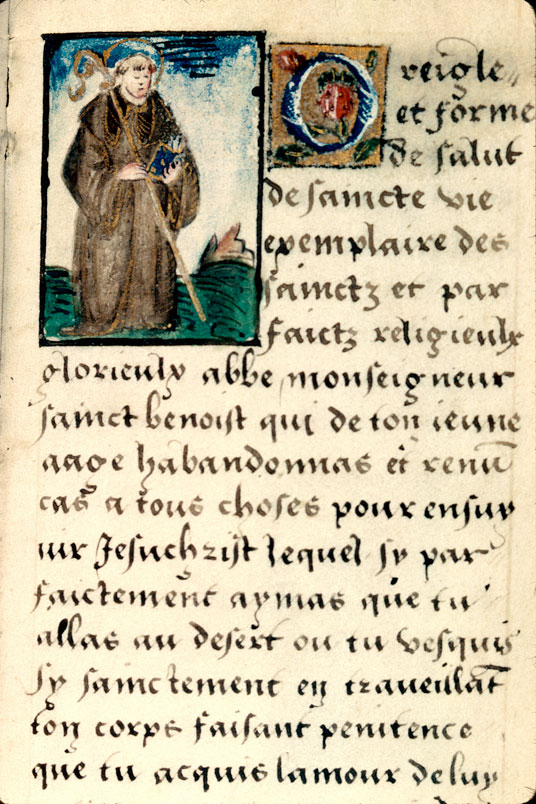 O reigle
et forme
de salut
de saincte vie
exemplaire des
sainctz et par
faictz religieulx
glorieulx abbe monseigneur
sainct benoist qui de ton ieune
aage habandonnas et renū
cas a tous choses pour ensuy
uir Jesuchrist lequel sy par
faictement aymas que tu
allas au desert ou tu vesquis
sy sainctement en traueillāt
ton corps faisant penitence
que tu acquis lamour de luy